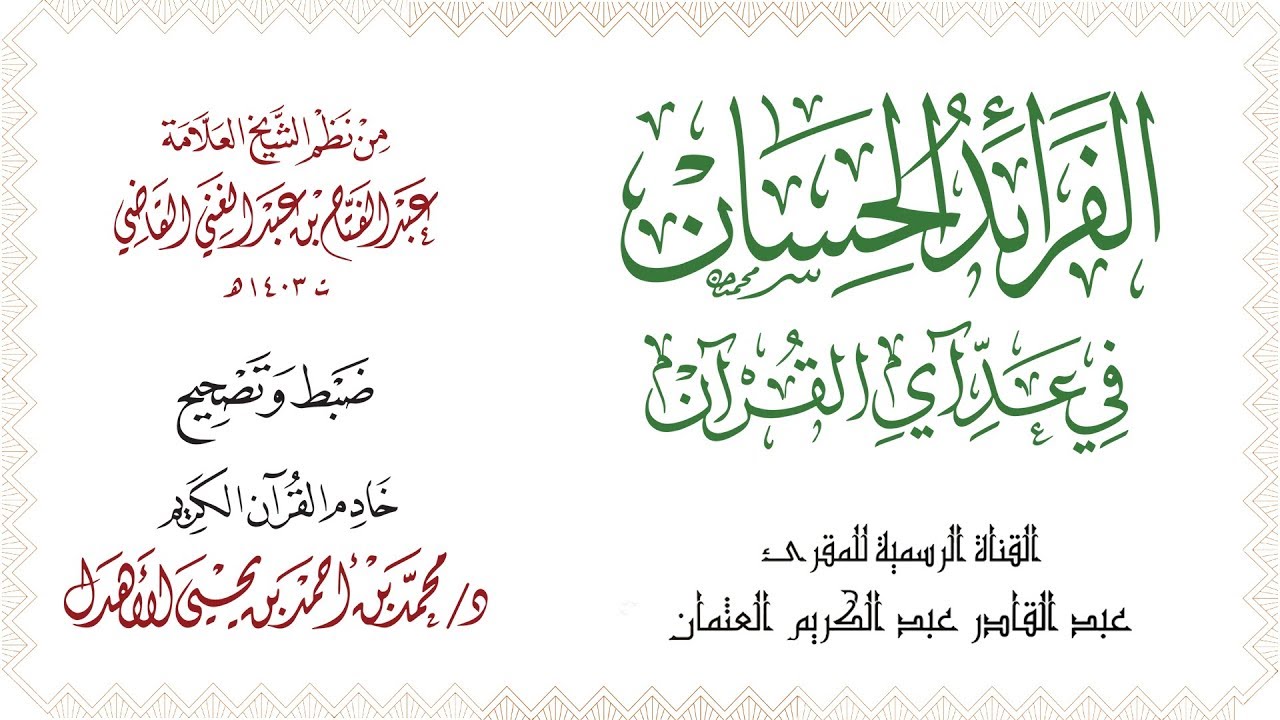 الفَرَائِدُ الحِسَانُ
فِي عَدِّ آيِ القُرْآنْ
القناة الرسمية للمقرئ
عبد القادر عبد الكريم العثمان
مِنْ نَظْمِ الشَّيْخِ العَلَّامَة
عَبْدِ الفَتَّاحِ بْنِ عَبْدِ الغَنِيِّ القَاضِي
ت ١٤٠٣هـ
ضَبْط وَتَصْحِيح
خَادِمِ القُرْآنِ الكَرِيمِ
د/ مُحَمَّد بْنُ أَحْمَدَ بْنِ يَحْيَى الأَهْدَل